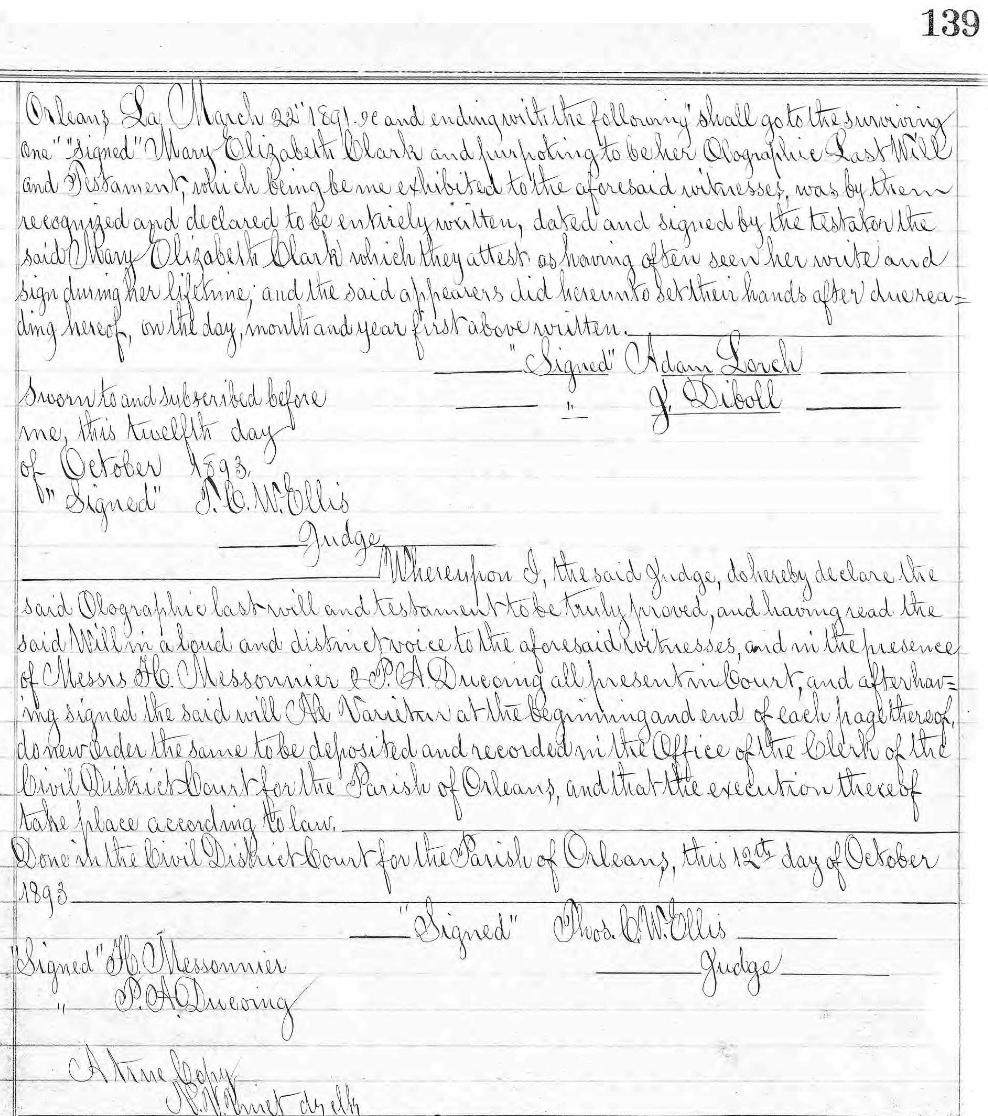 139
Orleans, La, March 22" 1891. &c and ending with the following "shall go to the surviving
one" "signed" Mary Elizabeth Clark and purpoting to be her Olographic Last Will
and Testament, which being be me exhibited to the aforesaid witnesses, was by them
recognized and declared to be entirely written, dated and signed by the testator the
said Mary Elizabeth Clark which they attest as having often seen her write and
sign during her lifetime; and the said appearers did hereunto set their hands after due rea=
ding hereof, on the day, month and year first above written.
"Signed" Adam Lorch
" J. Diboll
Sworn to and subscribed before
me, this twelfth day
of October 1893.
"Signed" T. C. W. Ellis
Judge
Whereupon I, the said Judge, do hereby declare the
said Olographic last will and testament to be truly proved, and having read the
said Will in a loud and district voice to the aforesaid witnesses, and in the presence
of Messrs H. Messonnier & P. A. Ducoing all present in Court, and after hav=
ing signed the said will Ne Varietur at the beginning and end of each page thereof,
do now order the same to be deposited and recorded in the Office of the Clerk of the
Civil District Court for the Parish of Orleans, and that the execution thereof
take place according to law.
Done in the Civil District Court for the Parish of Orleans, this 12th day of October
1893
"Signed" Thos. C. W. Ellis
Judge
"Signed" H. Messonnier
" P. A. Ducoing
A true Copy
dy clk